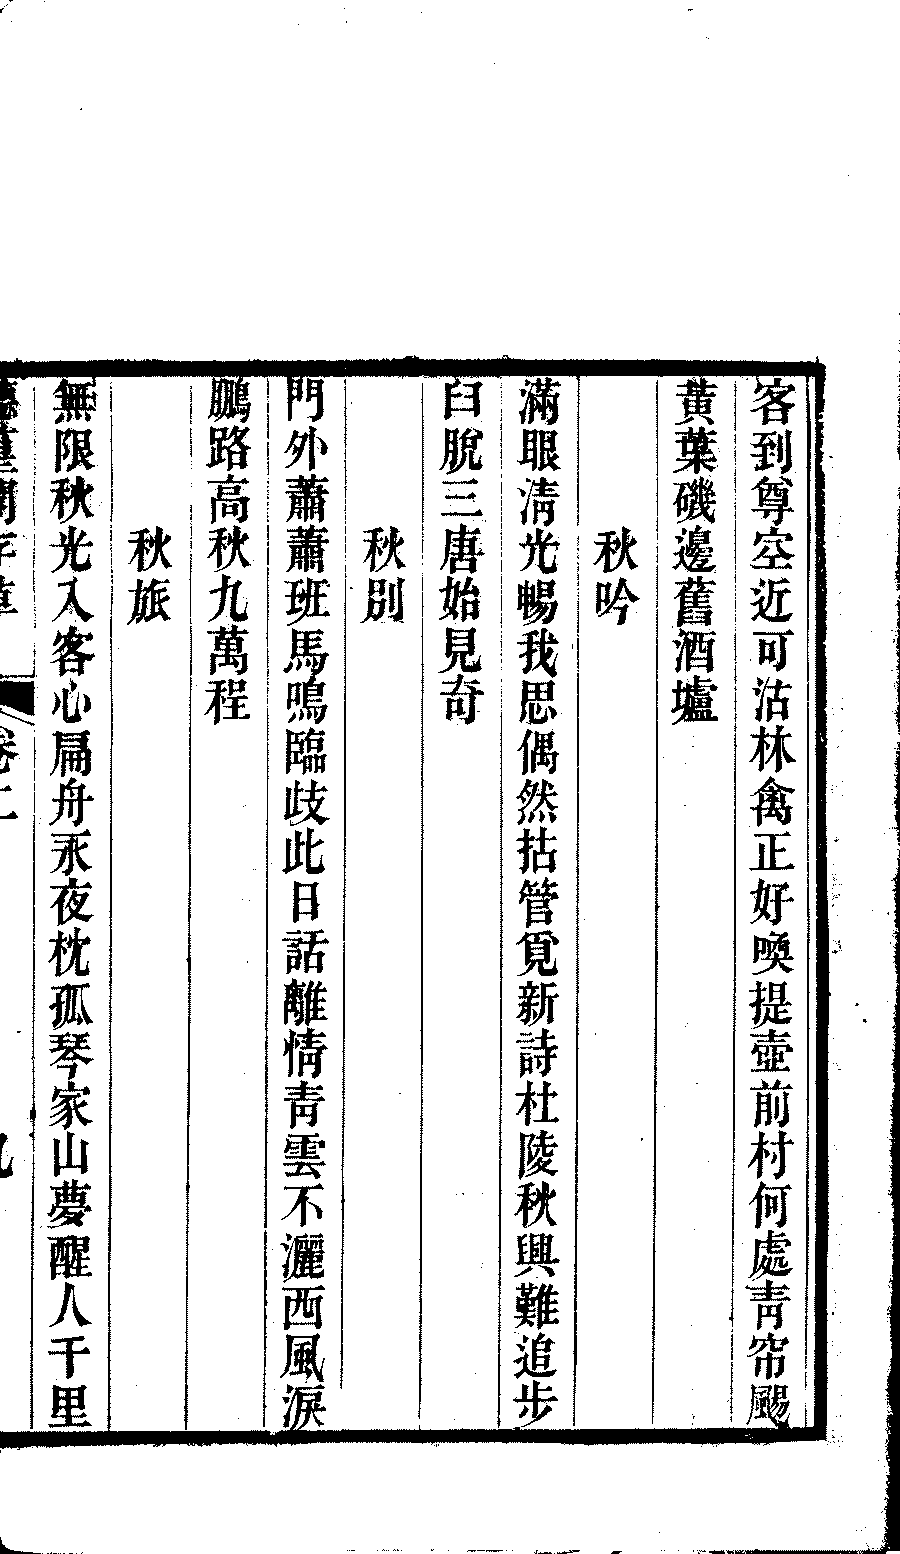 客到尊空近可沽林禽正好喚提壺前村何處靑帘颺
黃葉磯邊舊酒壚
秋吟
滿眼淸光暢我思偶然拈管覓新詩杜陵秋興難追步
臼脫三唐始見奇
秋別
門外蕭蕭班馬鳴臨歧此日話離情靑雲不灑西風淚
鵬路高秋九萬程
秋旅
無限秋光入客心扁舟永夜枕孤琴家山夢醒人千里
卷二